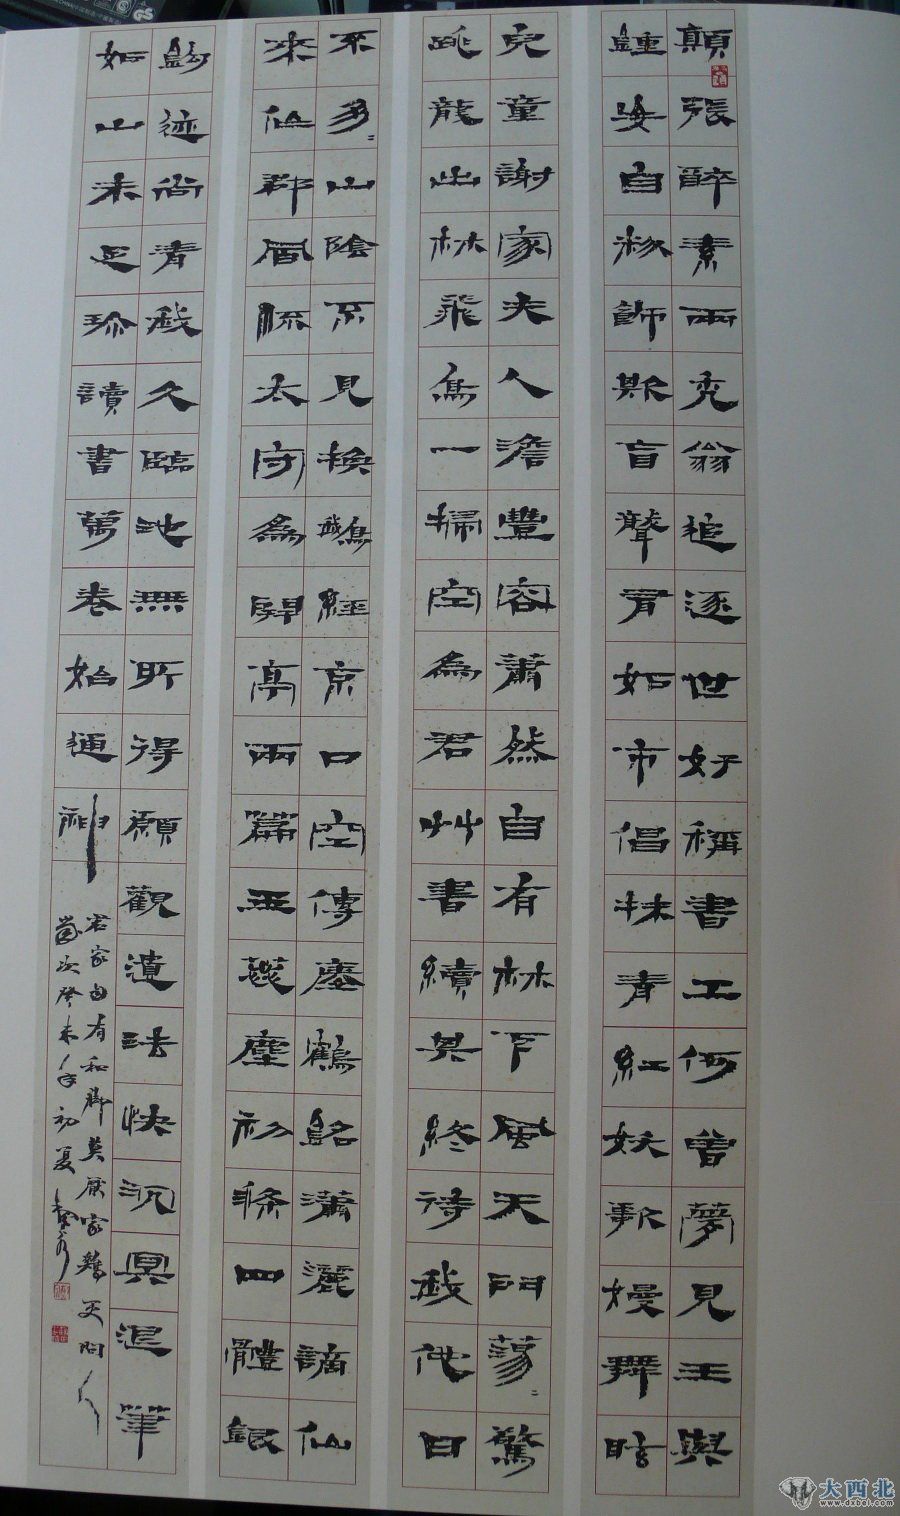 顛張醉素兩禿翁追逐世好稱書工何曾夢見王與
鍾妄自粉飾欺盲聾有如市倡抹青紅妖歌嫚舞眩
兒童謝家夫人澹豐容蕭然自有林下風天門蕩〻驚
跳龍出林飛鳥一掃空為君艸書續其終待我他日
不匆〻山陰不見換鵝經京口空傳瘞鶴銘瀟灑謫仙
來作郡風流太守為開亭兩篇玉蕊塵初滌四體銀
鉤迹尚青我久臨池無所得願觀遺法快沉冥退筆
如山未足珍讀書萬卷始通神
君家自有和腳莫厭家雞更問人
歲次癸未年初夏
大西北
www.dxbei.com